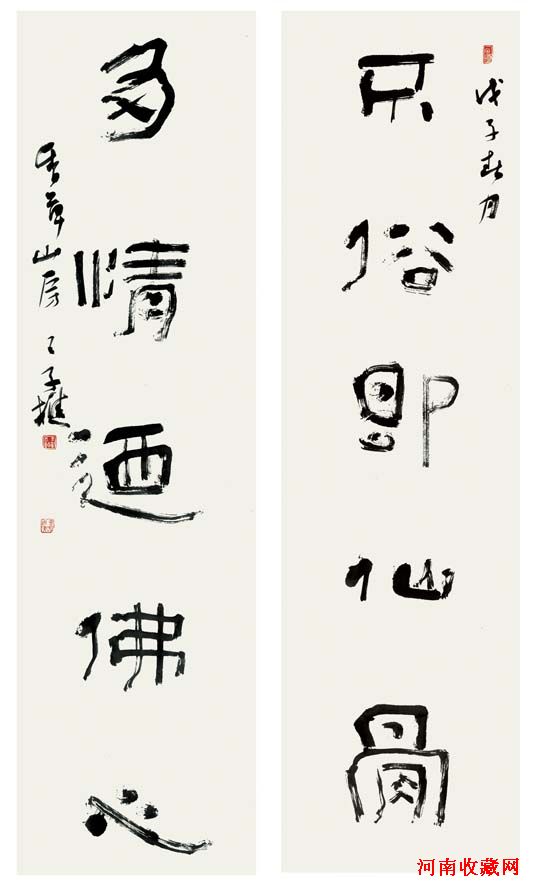 戊子春月
不俗即仙骨
多情迺佛心
香草山房
河南收藏网